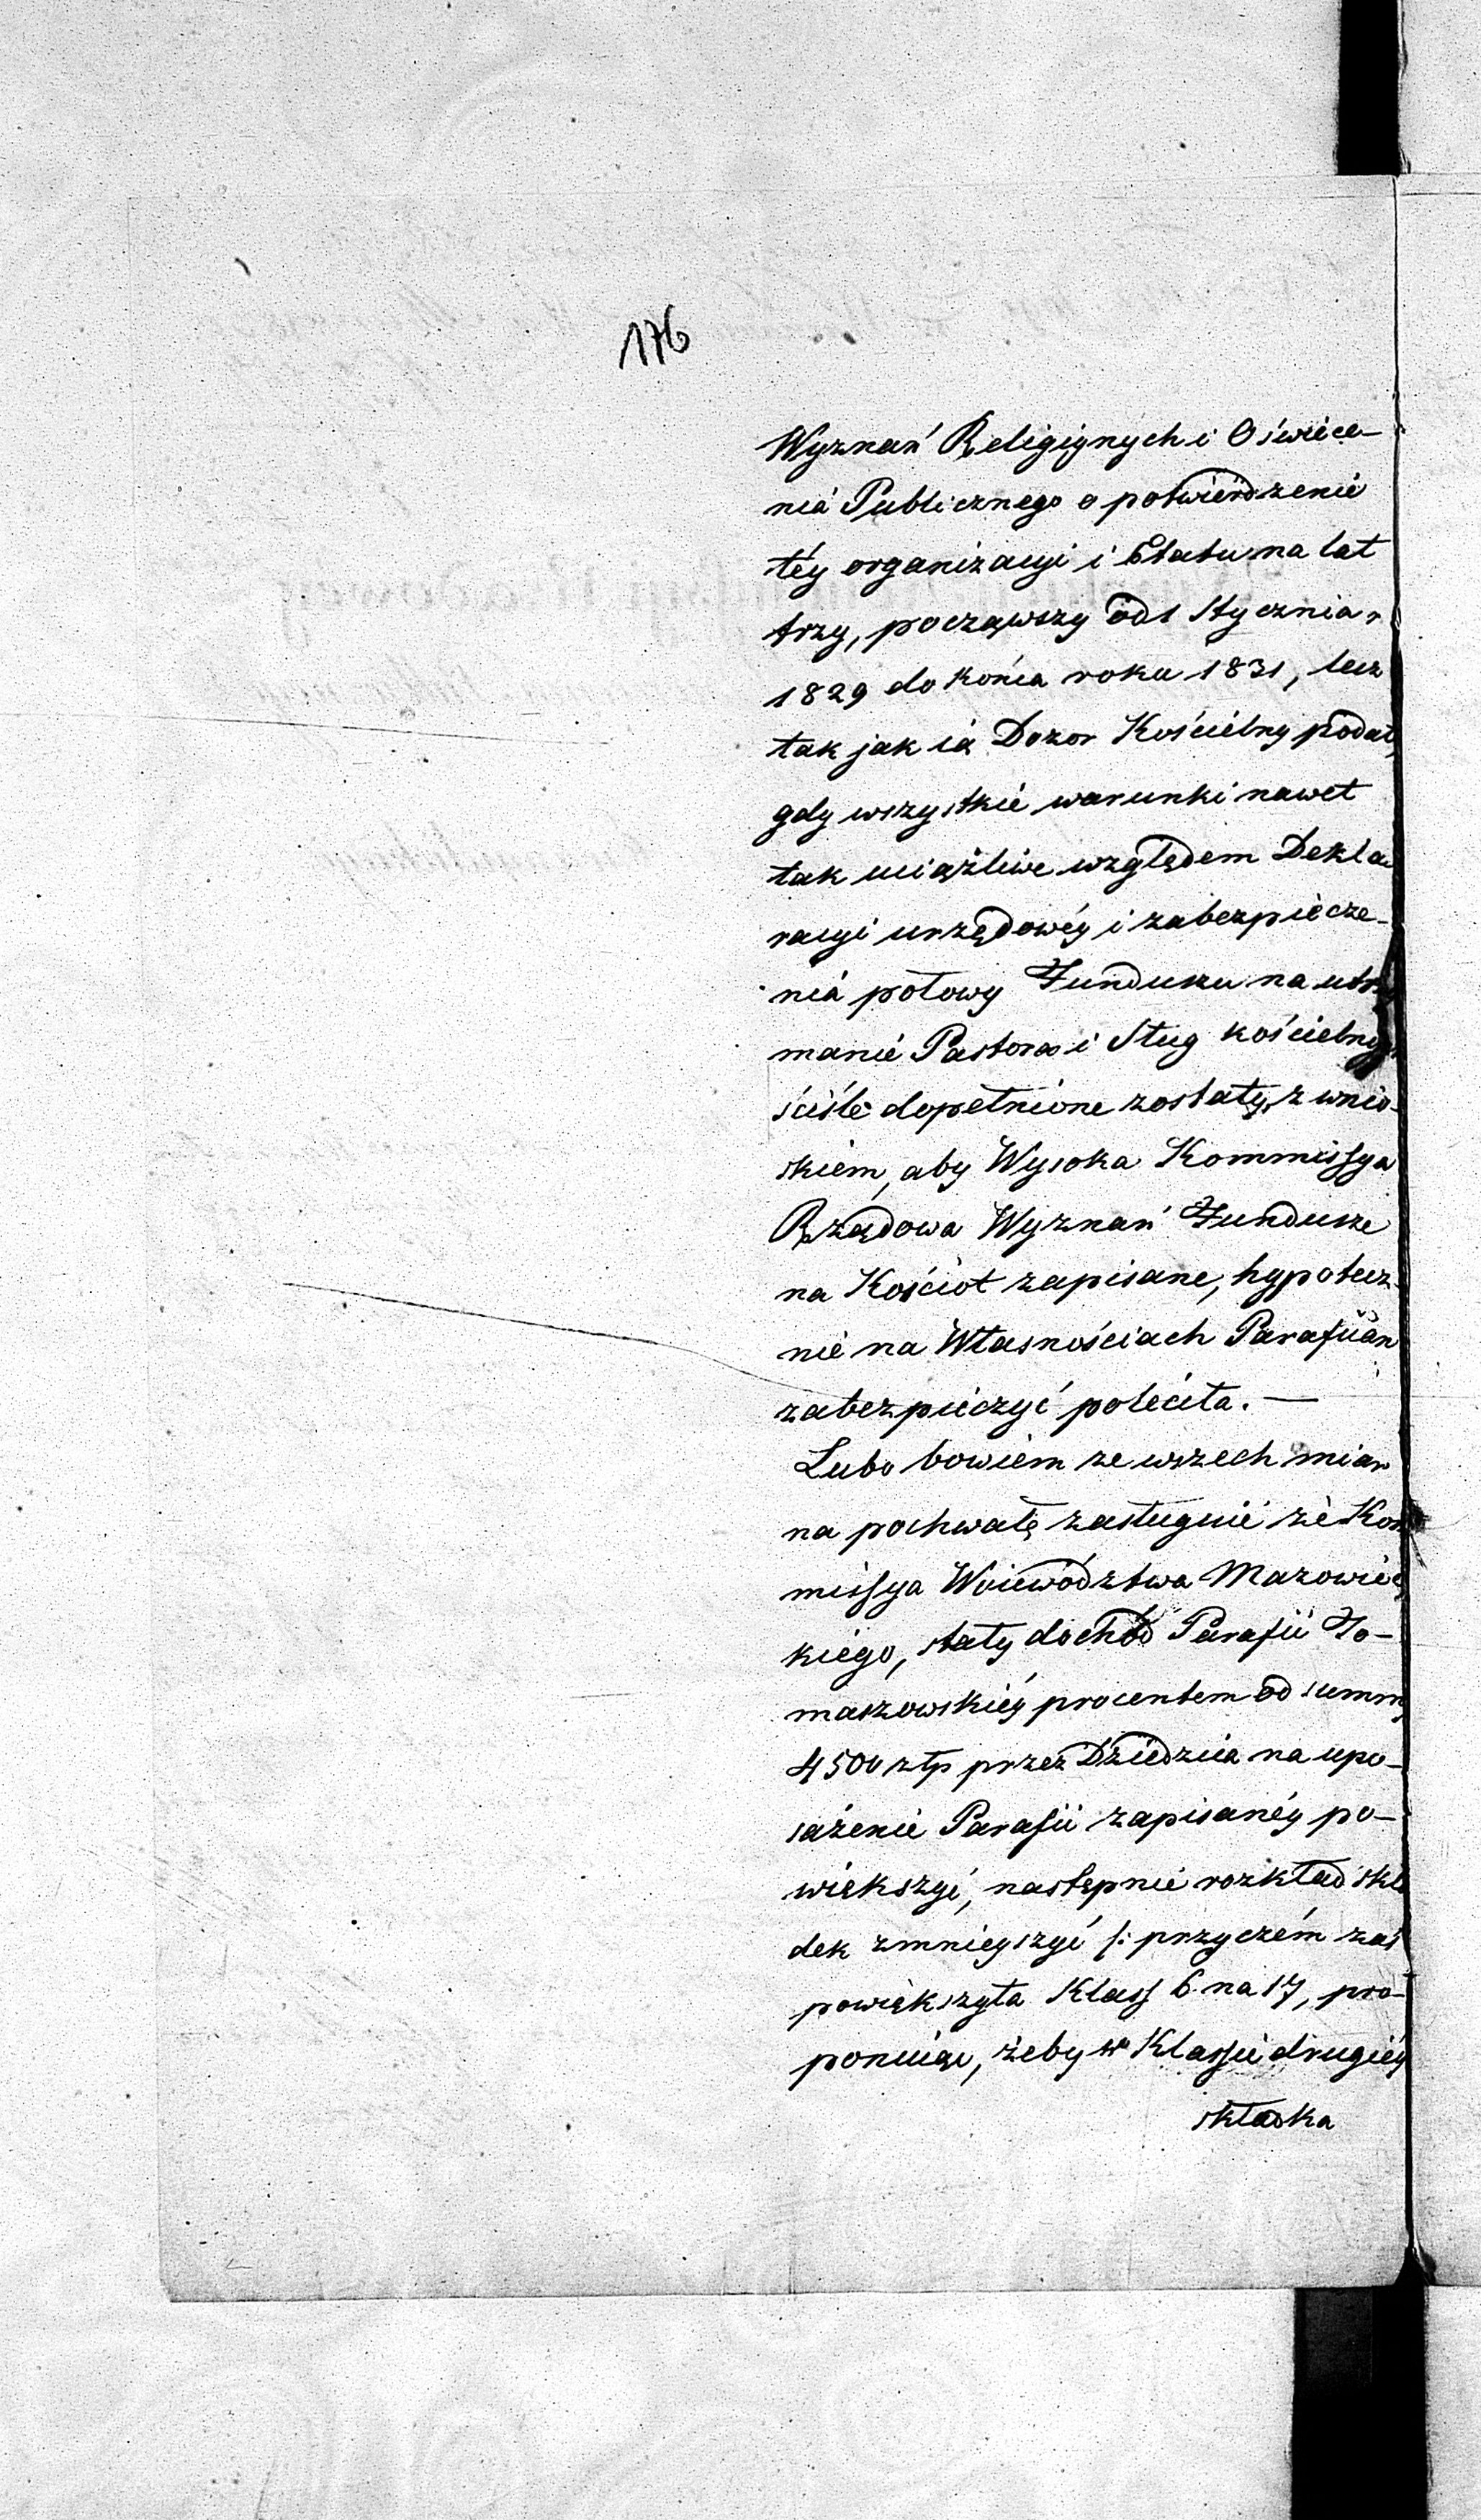 176
Wyznań Religiynych i Oświece-
nia Publicznego o potwierdzenie
téy organizacyi i Etatu na lat
trzy, począwszy od 1 Stycznia r.
1829 do końca roku 1831, lecz
tak jak ią Dozor Kościelny podał,
gdy wszystkie warunki nawet
tak uciążliwe względem Dekla-
racyi urzędowéy i zabezpiecze-
nia połowy Funduszu na utrzy
manie Pastora i Sług kościelnych
ściśle dopełnione zostały, z wnio-
skiem, aby Wysoka Kommissya
Rządowa Wyznań Fundusze
na Kościoł zapisane, hypotecz-
nie na Własnościach Parafiian
zabezpieczyć poleciła. —
Lubo bowiem ze wszech miar
na pochwałę zasługuie że Kom
missya Woiewództwa Mazowiec
kiego, stały dochód Parafii To-
maszowskiéy procentem od summy
4500 złp przez Dziedzica na upo-
sażenie Parafii zapisanéy po-
większyć, następnie rozkład skła
dek zmnieyszyć /: przyczém zaś
powiększyła Klass 6 na 17, pro-
ponuiąc, żeby w Klassie drugiéy
składka